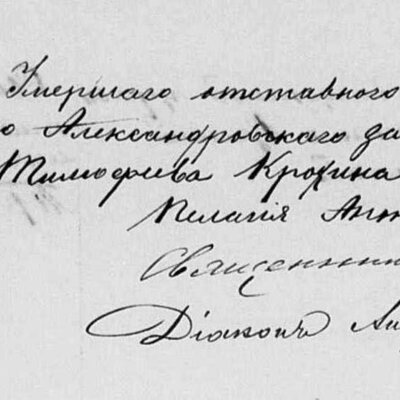 Умершаго отставного
о Александровскаго за
Тимофеева Крохина
Пелагія Ант
Священник
Діаконъ Ан